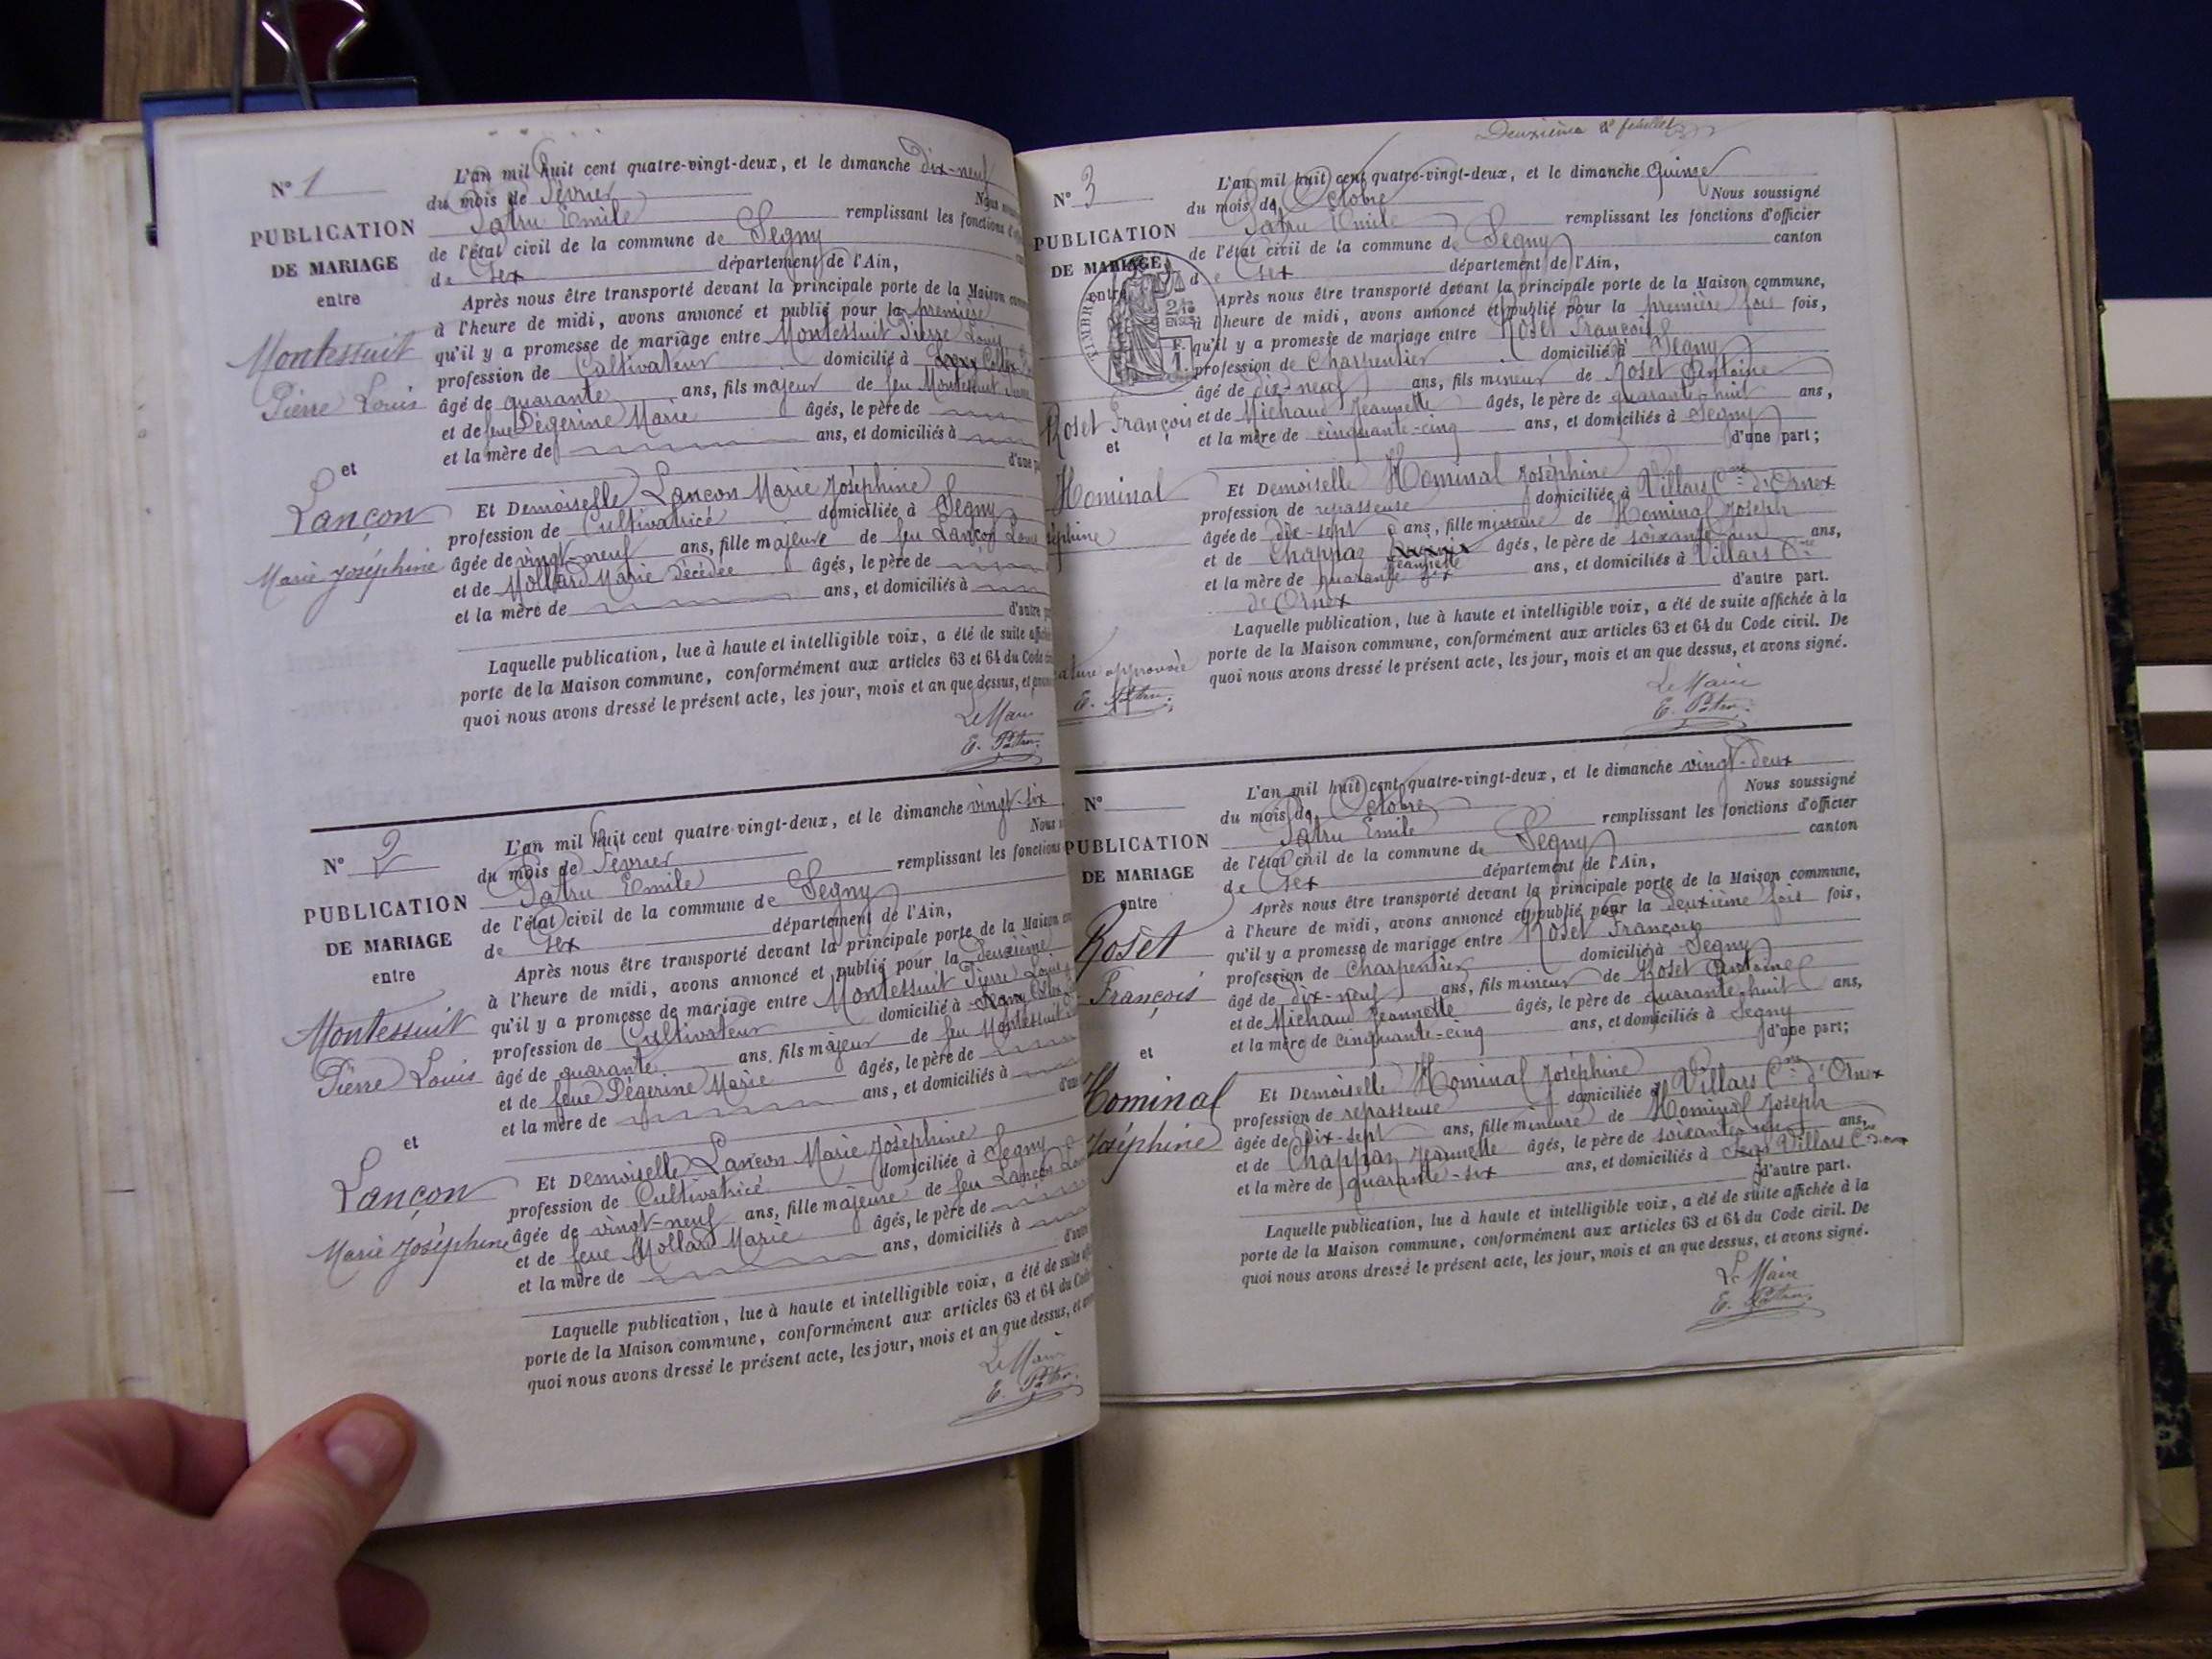 N° 1
PUBLICATION
DE MARIAGE
entre
Montessuit
Pierre Louis
et
Lançon
Marie Joséphine
L'an mil huit cent quatre-vingt-deux, et le dimanche dix-neuf
du mois de Février
Patru Emile remplissant les fonctions
de l'état civil de la commune de Segny
de Gex département de l'Ain,
Après nous être transporté devant la principale porte de la Maison
à l'heure de midi, avons annoncé et publié pour la première
qu'il y a promesse de mariage entre Montessuit Pierre Louis
profession de Cultivateur domicilié à Collex
âgé de quarante ans, fils majeur de feu Montessuit
et de feue Pégerine Marie âgés, le père de
et la mère de ans, et domiciliés à
Et Demoiselle Lançon Marie Joséphine
profession de Cultivatrice domiciliée à Segny
âgée de vingt-neuf ans, fille majeure de feu Lançon
et de Mollard Marie décédée âgés, le père de
et la mère de ans, et domiciliés à
d'autre
Laquelle publication, lue à haute et intelligible voix, a été de suite
porte de la Maison commune, conformément aux articles 63 et 64 du Code
quoi nous avons dressé le présent acte, les jour, mois et an que dessus, et
Le Maire
E. Patru
N° 2
PUBLICATION
DE MARIAGE
entre
Montessuit
Pierre Louis
et
Lançon
Marie Joséphine
L'an mil huit cent quatre-vingt-deux, et le dimanche vingt-six
Nous
du mois de Février
Patru Emile remplissant les fonctions
de l'état civil de la commune de Segny
de Gex département de l'Ain,
Après nous être transporté devant la principale porte de la Maison
à l'heure de midi, avons annoncé et publié pour la deuxième
qu'il y a promesse de mariage entre Montessuit Pierre Louis
profession de Cultivateur domicilié à Segny Collex
âgé de quarante ans, fils majeur de feu Montessuit
et de feue Pégerine Marie âgés, le père de
et la mère de ans, et domiciliés à
Et Demoiselle Lançon Marie Joséphine
profession de Cultivatrice domiciliée à Segny
âgée de vingt-neuf ans, fille majeure de feu Lançon
et de feue Mollard Marie âgés, le père de
et la mère de ans, domiciliés à
Laquelle publication, lue à haute et intelligible voix, a été de suite
porte de la Maison commune, conformément aux articles 63 et 64 du Code
quoi nous avons dressé le présent acte, les jour, mois et an que dessus, et
Le Maire
E. Patru
Deuxième feuillet
N° 3
PUBLICATION
DE MARIAGE
entre
Roset François
et
Hominal
approuvée
E. Patru
L'an mil huit cent quatre-vingt-deux, et le dimanche quinze
du mois de Octobre Nous soussigné
Patru Emile remplissant les fonctions d'officier
de l'état civil de la commune de Segny canton
de Gex département de l'Ain,
Après nous être transporté devant la principale porte de la Maison commune,
à l'heure de midi, avons annoncé et publié pour la première fois fois,
qu'il y a promesse de mariage entre Roset François
profession de Charpentier domicilié à Segny
âgé de dix-neuf ans, fils mineur de Roset Antoine
et de Michaud Jeannette âgés, le père de quarante-huit ans,
et la mère de cinquante-cinq ans, et domiciliés à Segny
d'une part;
Et Demoiselle Hominal Joséphine
profession de repasseuse domiciliée à Villars Cne d'Ornex
âgée de dix-sept ans, fille mineure de Hominal Joseph
et de Chappaz Jeannette âgés, le père de soixante un ans,
et la mère de quarante six ans, et domiciliés à Villars Cne
de Ornex d'autre part.
Laquelle publication, lue à haute et intelligible voix, a été de suite affichée à la
porte de la Maison commune, conformément aux articles 63 et 64 du Code civil. De
quoi nous avons dressé le présent acte, les jour, mois et an que dessus, et avons signé.
Le Maire
E. Patru
N°
PUBLICATION
DE MARIAGE
entre
Roset
François
et
Hominal
Joséphine
L'an mil huit cent quatre-vingt-deux, et le dimanche vingt-deux
du mois de Octobre Nous soussigné
Patru Emile remplissant les fonctions d'officier
de l'état civil de la commune de Segny canton
de Gex département de l'Ain,
Après nous être transporté devant la principale porte de la Maison commune,
à l'heure de midi, avons annoncé et publié pour la deuxième fois fois,
qu'il y a promesse de mariage entre Roset François
profession de Charpentier domicilié à Segny
âgé de dix-neuf ans, fils mineur de Roset Antoine
et de Michaud Jeannette âgés, le père de quarante-huit ans,
et la mère de cinquante-cinq ans, et domiciliés à Segny
d'une part;
Et Demoiselle Hominal Joséphine
profession de repasseuse domiciliée à Villars Cne d'Ornex
âgée de dix-sept ans, fille mineure de Hominal Joseph
et de Chappaz Jeannette âgés, le père de soixante un ans,
et la mère de quarante-six ans, et domiciliés à Villars Cne
d'autre part.
Laquelle publication, lue à haute et intelligible voix, a été de suite affichée à la
porte de la Maison commune, conformément aux articles 63 et 64 du Code civil. De
quoi nous avons dressé le présent acte, les jour, mois et an que dessus, et avons signé.
Le Maire
E. Patru